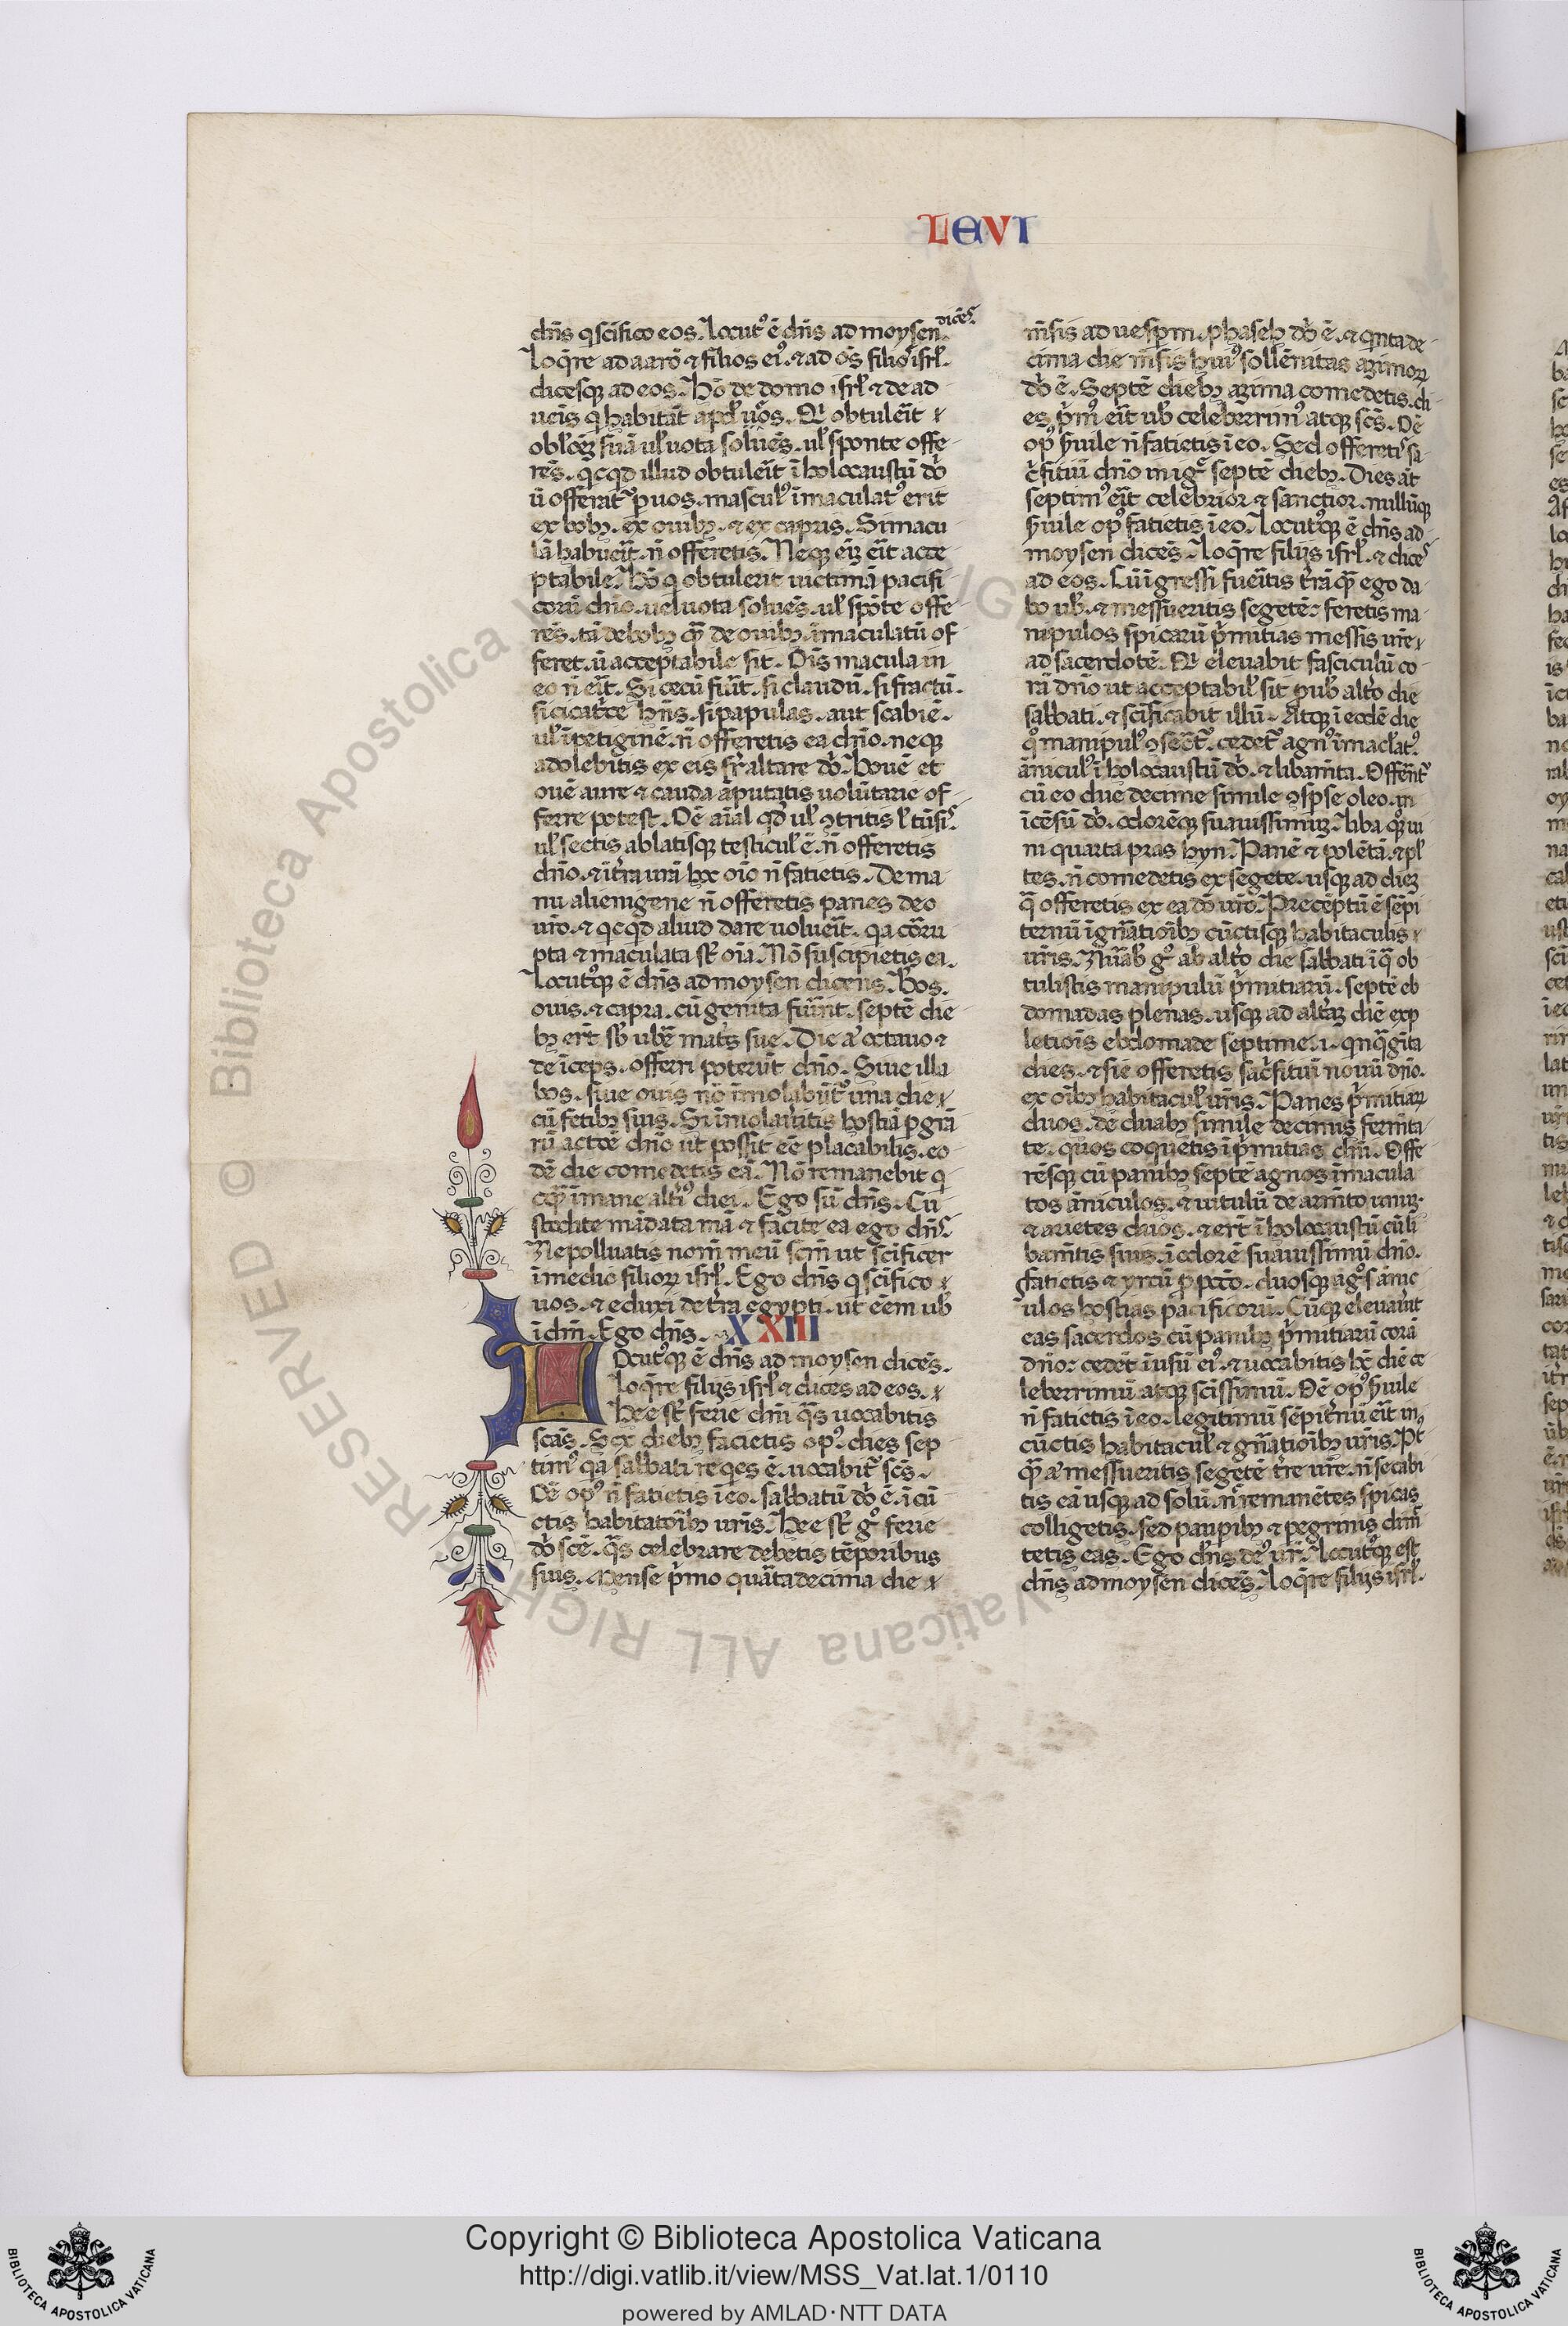 LEVI
dn̄s q sc̄ifico eos. Locut᷒ ē dn̄s ad moysen dicēs.
Loq̄re ad aarō & filios ei᷒. & ad oēs filios isrl̄.
dicesq; ad eos. Hō de domo isrl̄ & de ad
ueīs q habitāt apd̕ uos. Qi obtulerīt
obl̕oēȝ suā ul̕ uota soluēs. ul̕ sponte offe
rēs. qcqd illud obtulerīt ī holocaustū dn̄i
ū offerat᷒ p uos. mascul᷒ īmaculat᷒ erit
ex bobȝ. ex ouibȝ. & ex capris. Si macu
lā habuerīt. n̄ offeretis. Neq; eīȝ erīt acce
ptabile. Hō q obtulerit uictimā pacifi
corū dn̄o. uel uota soluēs. ul̕ spōte offe
rēs. tā de bobȝ qȝ de ouibȝ. īmaculatū of
feret. ū acceptabile sit. Oīs macula in
eo n̄ erīt. Si cecū fuerīt. si claudū. si fractū.
si cicatcē hn̄s. si papulas. aut scabiē.
ul̕ īpetiginē. n̄ offeretis ea dn̄o. neq;
adolebitis ex eis sr̄ altare dn̄i. Bouē et
ouē aure & cauda āputatis uolūtarie of
ferre potest. Oē aīal qd̕ ul̕ ꝯtritis l̕ tūsis.
ul̕ sectis ablatisq; testicul̕ ē. n̄ offeretis
dn̄o. & ī tr̄a urā hoc oīo n̄ fatietis. De ma
nu alienigene n̄ offeretis panes deo
uro. & qcqd aliud dare uoluerīt. qa cōru
pta & maculata st̄ oīa. Nō suscipietis ea.
Locut᷒q; ē dn̄s ad moysen dicens. Bos.
ouis. & capra. cū genita fuerint. septē die
bȝ ert̄ sb̄ ubē matis sue. Die a᷒ octauo &
de īceps. offerri poterūt dn̄o. Siue illa
bos. siue ouis nō īmolabūt᷒ una die
cū fetibȝ suis. Si īmolauitis hostiā p grā
rū actōe dn̄o ut possit eē placabilis. eo
dē die comedetis eā. Nō remanebit q
cqȝ ī mane alti᷒ diei. Ego sū dn̄s. Cu
stodite mādata mā & facite ea ego dn̄s.
Ne polluatis nom̄ meū scm̄ ut sc̄ificer
ī medio filioꝝ isrl̄. Ego dn̄s q sc̄ifico
uos. & eduxi de tr̄a egypti. ut eēm ub̕
ī dm̄. Ego dn̄s. XXIII
Locut᷒q; ē dn̄s ad moysen dicēs.
Loq̄re filijs isrl̄ & dices ad eos.
Hee st̄ ferie dn̄i qās uocabitis
scās. Sex diebȝ facietis op᷒. dies sep
tim᷒ qa sabbati reqes ē. uocabit᷒ scs̄.
Oē op᷒ n̄ fatietis ī eo. sabbatū dn̄i ē. ī cū
ctis habitatoībȝ uris. Hee st̄ gͦ ferie
dn̄i scē. qās celebrare debetis tēporibus
suis. Mense p̄mo quātadecima die
mēsis ad uesperm. phaseh dn̄i ē. & qnta de
cima die mēsis hui᷒ sollēnitas azimoꝝ
dn̄i ē. Septē diebȝ azima comedetis. di
es p̄m᷒ erīt ub̕ celeberrim᷒ atq; scs̄. Oē
op᷒ ẜuile n̄ fatietis ī eo. Sed offeretis sa
c̄fitiū dn̄o in ige septē diebȝ. Dies at̄
septim᷒ erīt celebrior & sanctior. nullūq;
ẜuile op᷒ fatietis ī eo. Locut᷒q; ē dn̄s ad
moysen dicēs. Loq̄re filijs isrl̄. & dices
ad eos. Cū īgressi fueritis tr̄ā qȝ ego da
bo ub̕. & messueritis segetē: feretis ma
nipulos spicarū p̄mitias messis ure
ad sacerdotē. Qi eleuabit fasciculū co
rā dn̄o ut acceptabil̕ sit p ub̕ altō die
sabbati. & sc̄ificabit illū. Atq; ī eodē die
qͦ manipul᷒ ꝯsec̄t᷒. cedet᷒ agn᷒ īmacl̕at᷒.
ānicul᷒ ī holocaustū dn̄i. & libamīta. Offerēt᷒
cū eo due decime simile ꝯspse oleo. in
īcēsū dn̄i. odorēq; suauissimȝ. liba qȝ ui
ni quarta pras hyn. Panē & polētā. & pl̕
tes. n̄ comedetis ex segete. usq; ad dieȝ
qā offeretis ex ea dō uro. Preceptū ē sēpi
ternū ī gn̄atioībȝ cūctisq; habitaculis
uris. Nūab̕ gͦ ab altō die sabbati ī qͦ ob
tulistis manipulū p̄mitiarū. septē eb
domadas plenas. usq; ad altāȝ diē exp
letiois ebdomade septime. i. qnqāgīta
dies. & sic offeretis sac̄fitiū nouū dn̄o.
ex oībȝ habitacul̕ uris. Panes p̄mitiaꝝ
duos. de duabȝ simile decimis fermīta
te. quos coquetis ī p̄mitias dn̄i. Offe
rēsq; cū panibȝ septē agnos īmacula
tos āniculos. & uitulū de armīto unuȝ.
& arietes duos. & ert̄ ī holocaustū cū li
bamītis suis. ī odorē suauissimū dn̄o.
fatietis & yrcū p pctō. duosq; agos ānic
ulos hostias pacificorū. Cūq; eleuauīt
eas sacerdos cū panibȝ p̄mitiarū corā
dn̄o: cedēt ī usū ei᷒. & uocabitis hc̄ diē ce
leberrimū atq; scissimū. Oē op᷒ ẜuile
n̄ fatietis ī eo. legitimū sēpit̄nū erīt in
cūctis habitacul̕ & gn̄atioībȝ uris. Pt
qȝ a᷒ messueritis segetē tr̄e ure. n̄ secabi
tis eā usq; ad solū. n̄ remanētes spicas
colligetis. sed paupibȝ & pegrinis dimī
tetis eas. Ego dn̄s de᷒ ur̄. Locut᷒q; est
dn̄s ad moysen dicēs. Loq̄re filijs isrl̄.
Copyright © Biblioteca Apostolica Vaticana
http://digi.vatlib.it/view/MSS_Vat.lat.1/0110
powered by AMLAD·NTT DATA
BIBLIOTECA APOSTOLICA VATICANA
BIBLIOTECA APOSTOLICA VATICANA